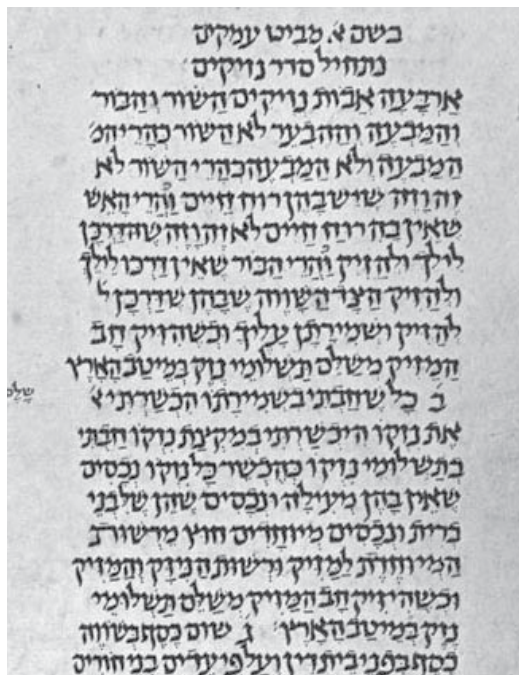 בשם א׳ מביט עמקים
נתחיל סדר נזיקים
אַרְבָּעָה אֲבוֹת נְזִיקִים הַשּׁוֹר וְהַבּוֹר
וְהַמַּבְעֶה וְהַהַבְעֵר לֹא הַשּׁוֹר כַּהֲרֵי הַמּ׳
הַמַּבְעֶה וְלֹא הַמַּבְעֶה כַּהֲרֵי הַשּׁוֹר לֹא
זֶה וָזֶה שֶׁיֵּשׁ בָּהֶן רוּחַ חַיִּים כַּהֲרֵי הָאֵשׁ
שֶׁאֵין בָּהּ רוּחַ חַיִּים לֹא זֶה וָזֶה שֶׁדַּרְכָּן
לֵילֵךְ וּלְהַזִּיק כַּהֲרֵי הַבּוֹר שֶׁאֵין דַּרְכּוֹ לֵילֵךְ
וּלְהַזִּיק הַצַּד הַשָּׁווֶה שֶׁבָּהֶן שֶׁדַּרְכָּן ל
לְהַזִּיק וּשְׁמִירָתָן עָלֶיךָ וּכְשֶׁהִזִּיק חָב
הַמַּזִּיק מְשַׁלֵּם תַּשְׁלוּמֵי נֶזֶק בְּמֵיטַב הָאָרֶץ
ב׳ כָּל שֶׁחַבְתִּי בִשְׁמִירָתוֹ הִכְשַׁרְתִּי א׳
אֶת נִזְקוֹ הִיכְשַׁרְתִּי בְמִקְצָת נִזְקוֹ חַבְתִּי
בְתַשְׁלוּמֵי נִזְקוֹ כְּהֶכְשֵׁר כָּל נִזְקוֹ נְכָסִים
שֶׁאֵין בָּהֶן מְעִילָה וּנְכָסִים שֶׁהֵן שֶׁלִּבְנֵי
בְרִית וּנְכָסִים מְיוּחָדִים חוּץ מֵרְשׁוּת
הַמְיוּחֶדֶת לַמַּזִּיק וּרְשׁוּת הַנִּיזָּק וְהַמַּזִּיק
וּכְשֶׁהִיזִּיק חָב הַמַּזִּיק מְשַׁלֵּם תַּשְׁלוּמֵי
נֶזֶק בְּמֵיטַב הָאָרֶץ ג׳ שׁוּם כֶּסֶף בְּשׁווֶה
כֶסֶף בִּפְנֵי בֵית דִּין וְעַל פִּי עֵדִים בְּנֵי חוֹרִים